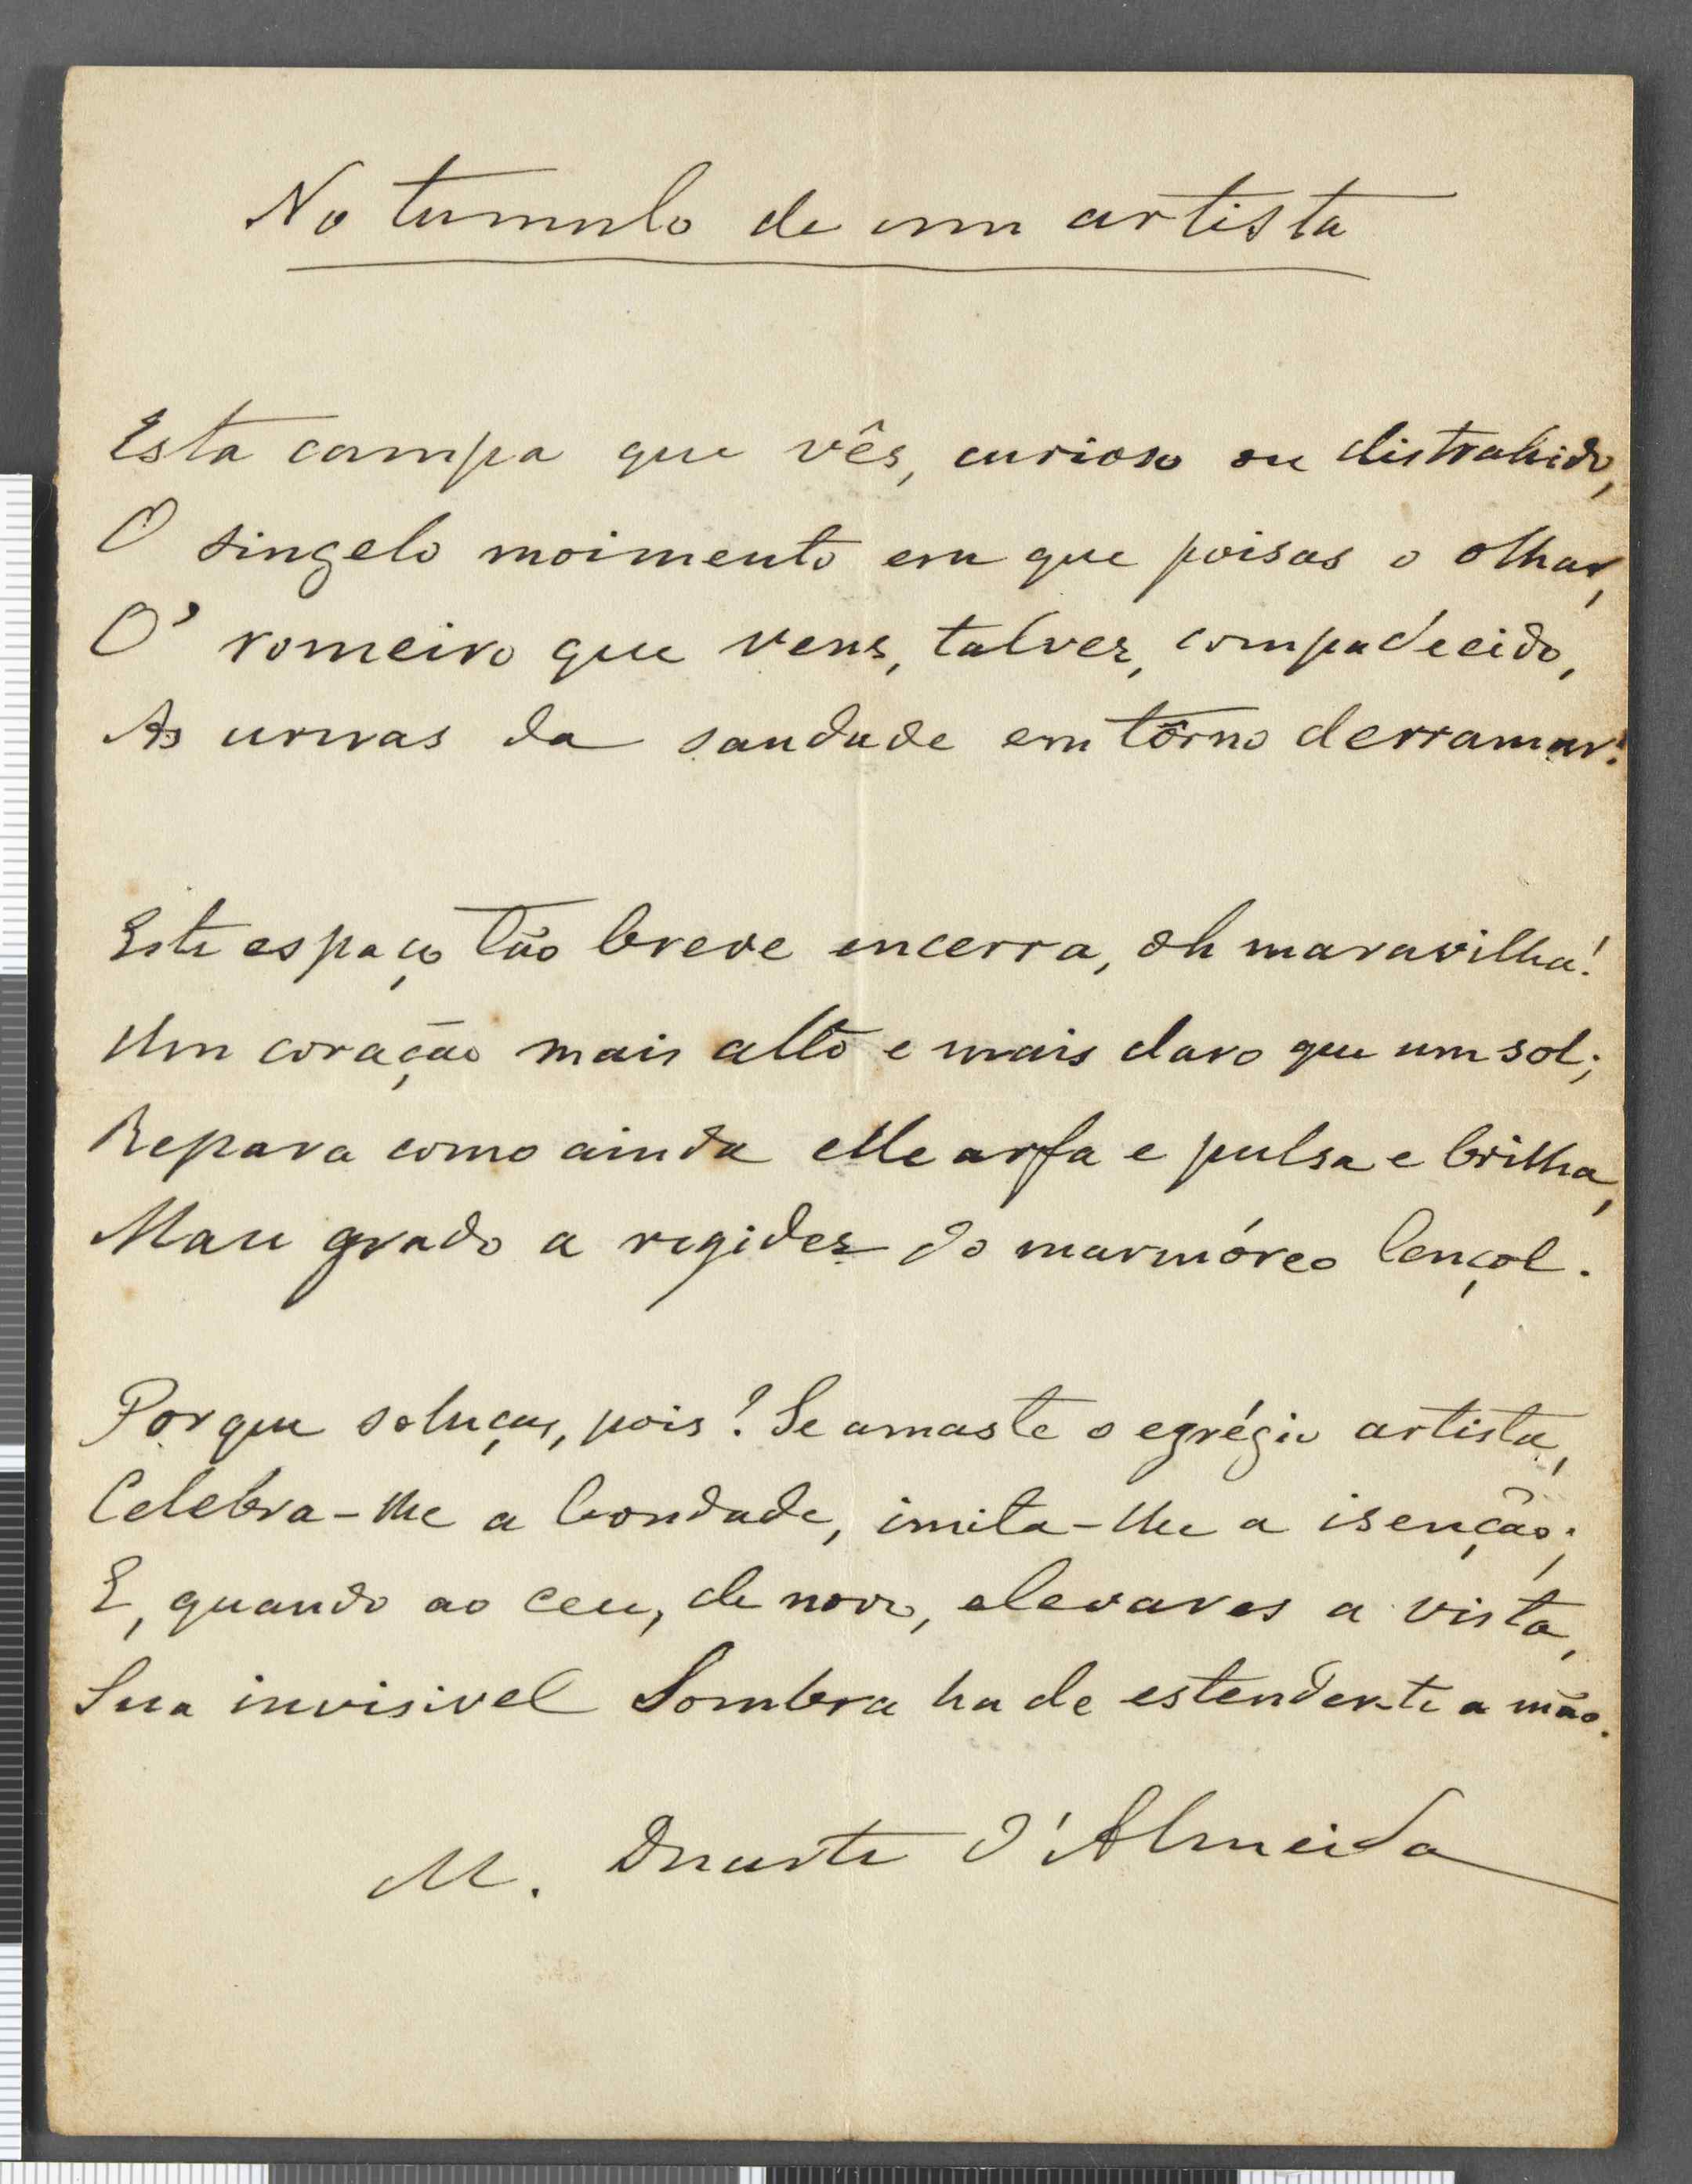 No tumulo de um artista
Esta campa que vês, curioso ou distrahido,
O singelo moimento em que poisas o olhar,
O' romeiro que vens, talvez, compadecido,
As urnas da saudade em tôrno derramar!
Este espaço tão breve encerra, oh maravilha!
Um coração mais alto e mais claro que um sol;
Repara como ainda elle arfa e pulsa e brilha,
Mau grado a regidez do marmóreo lençol.
Porque soluças, pois? Se amaste o egrégio artista,
Celebra-lhe a bondade, imita-lhe a isenção;
E, quando ao ceu, de novo, elevares a vista,
Sua invisivel Sombra ha de estender-te a mão.
M. Duarte d'Almeida